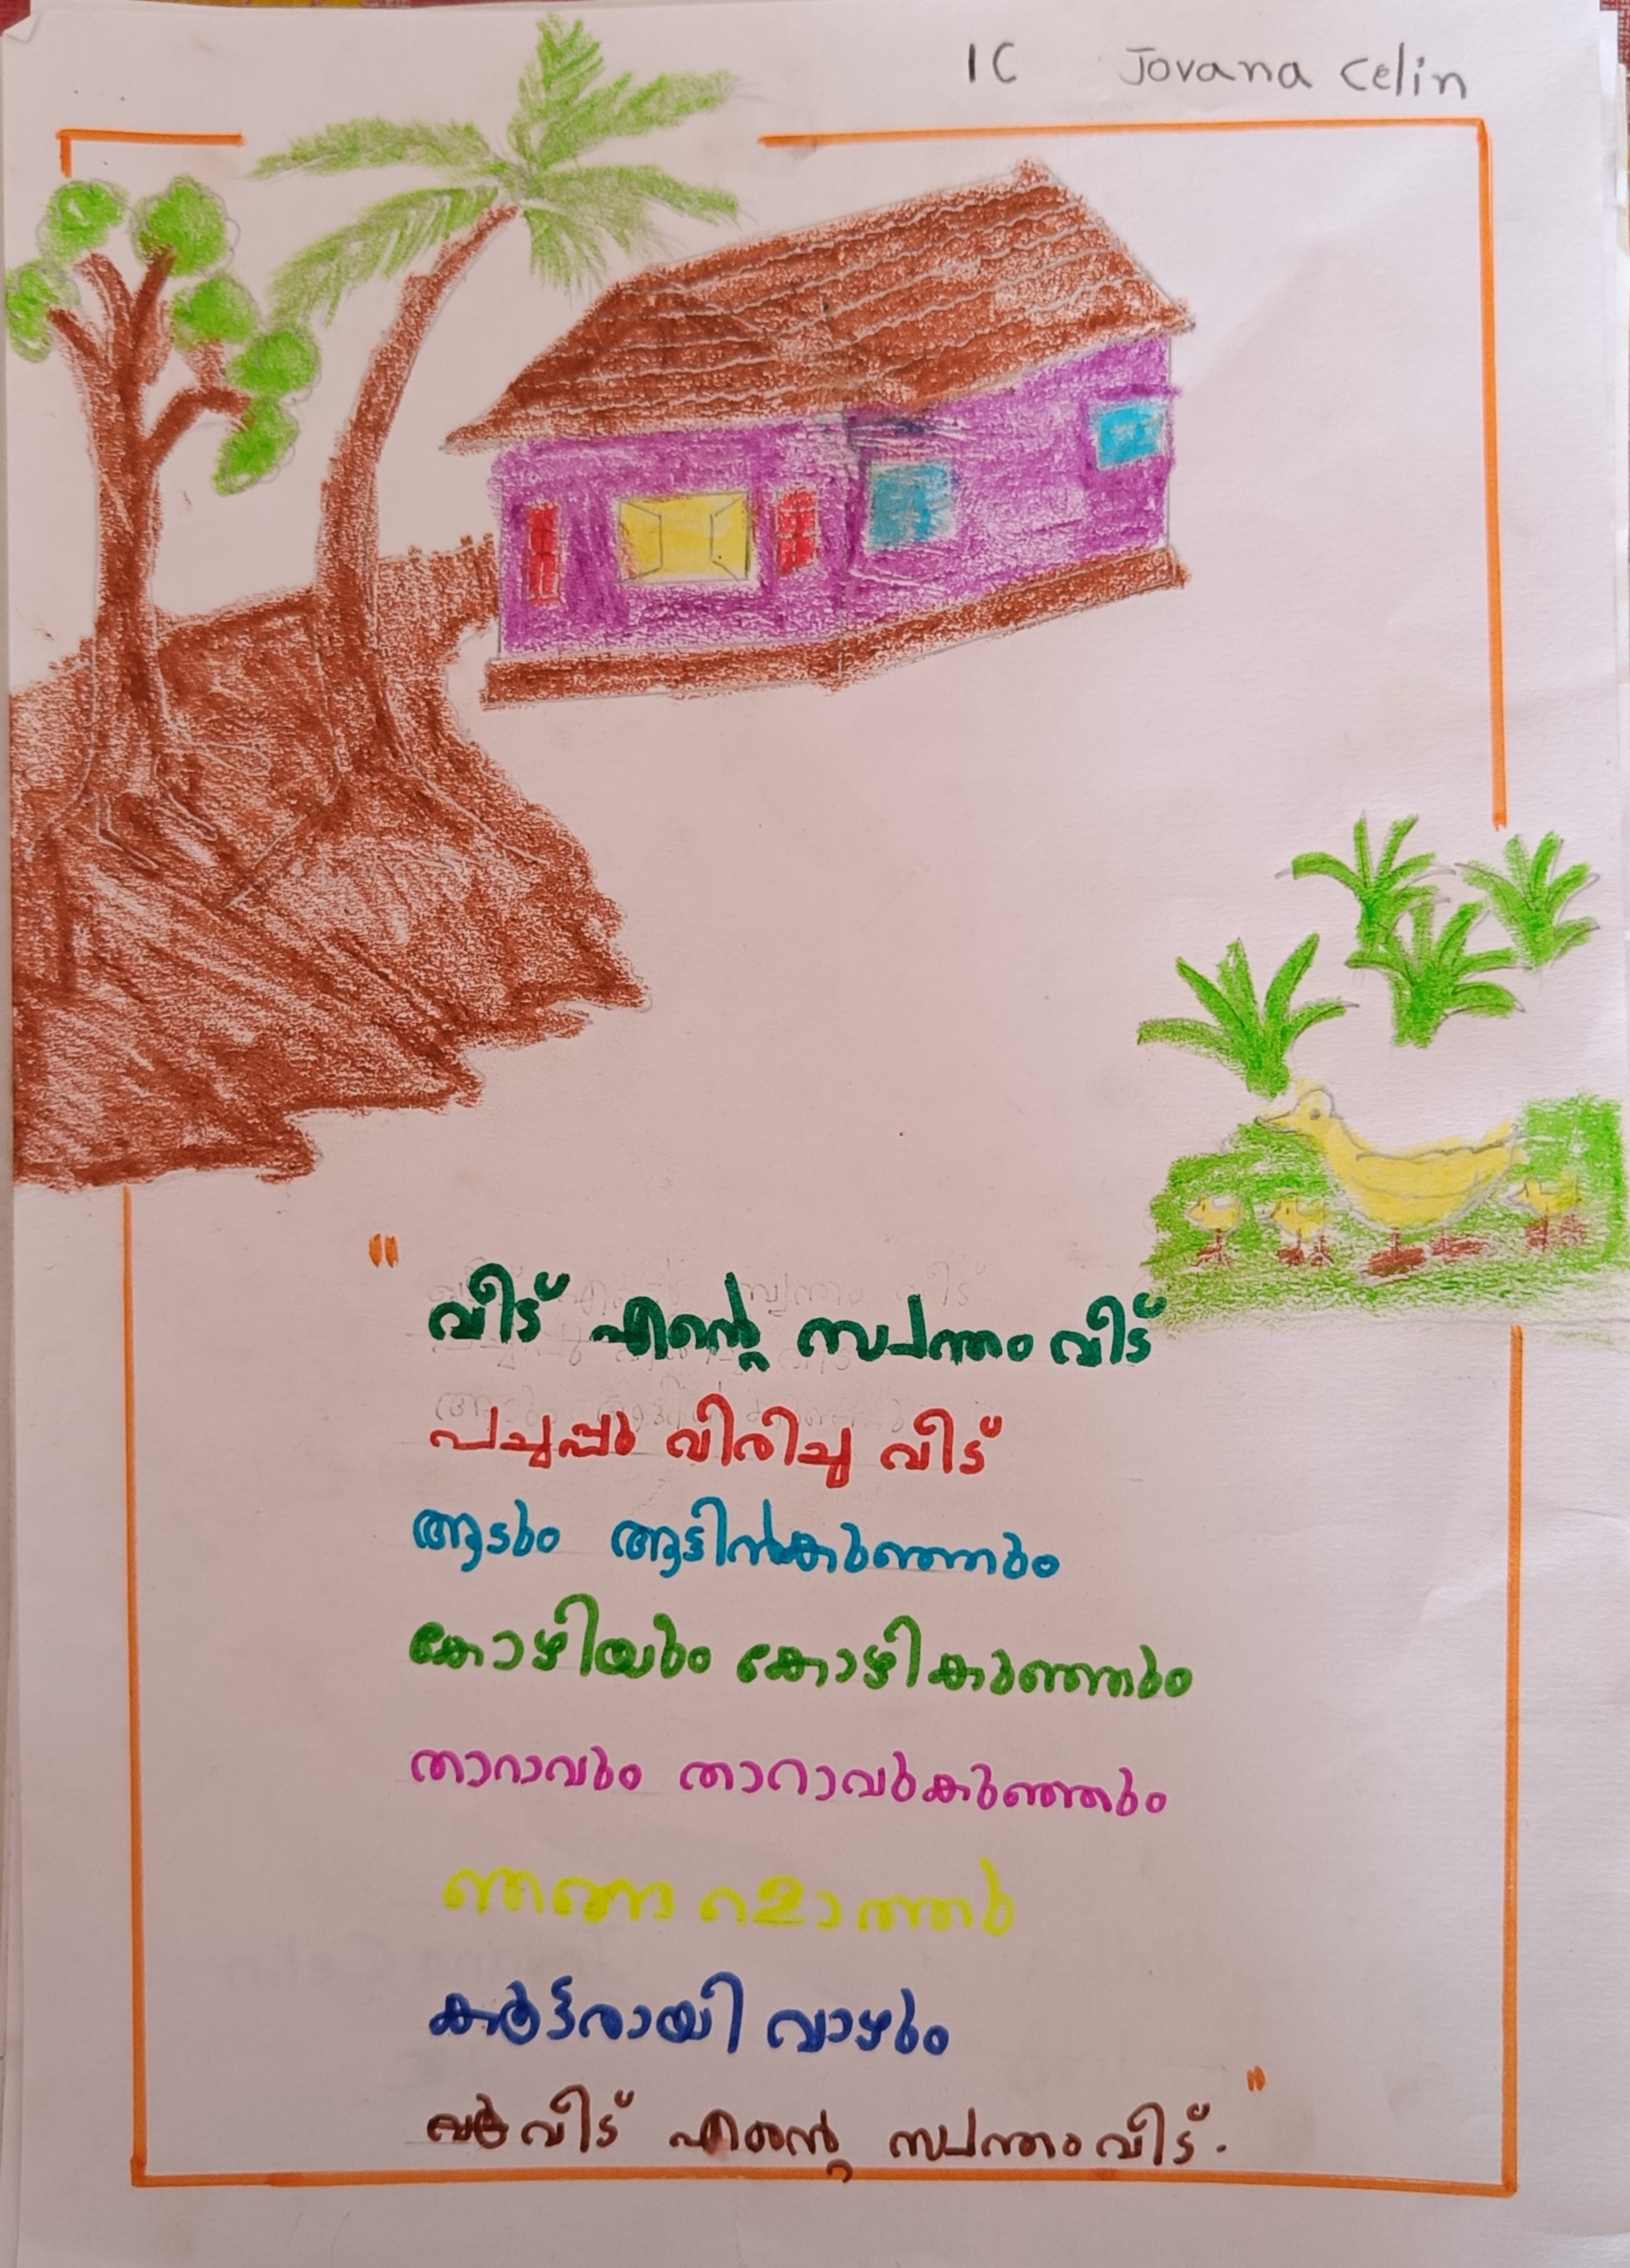 1C Jovana Celin
"വീട് എന്റെ സ്വന്തം വീട്
പച്ചപ്പു വിരിച്ച വീട്
ആടും ആട്ടിൻകുഞ്ഞും
കോഴിയും കോഴികുഞ്ഞും
താറാവും താറാവുകുഞ്ഞും
ഞങ്ങളൊത്ത്
കൂട്ടരായി വാഴും
വീട് എന്റെ സ്വന്തം വീട്."